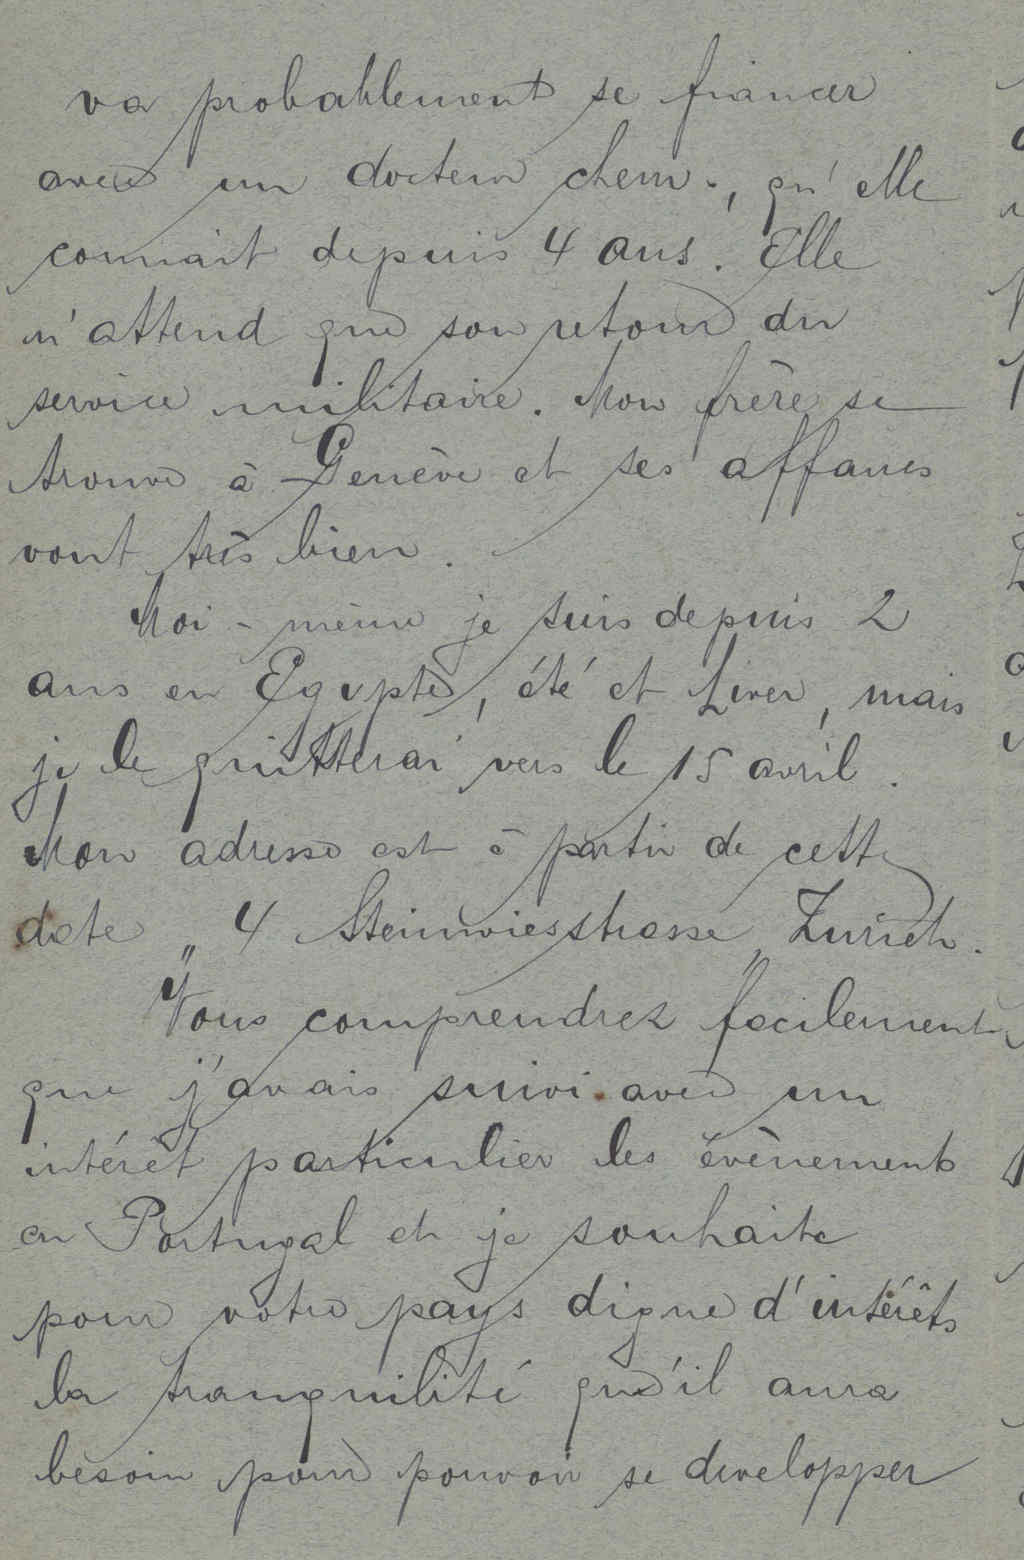 va probablement se fiancer
avec un docteur chem., qu'elle
connait depuis 4 ans. Elle
n'attend que son retour du
service militaire. Mon frère se
trouve à Genève et ses affaires
vont très bien.
Moi-même je suis depuis 2
ans en Egypte, été et hiver, mais
je le quitterai vers le 15 avril.
Mon adresse est à partir de cette
date „4 Steinwiesstrasse„ Zurich.
Vous comprendrez facilement
que j'avais suivi avec un
intérêt particulier les évènements
en Portugal et je souhaite
pour votre pays digne d'intérêts
la tranquilité qu'il aura
besoin pour pouvoir se developper